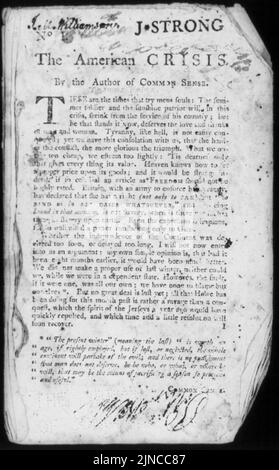 J. Williamson J·STRONG
The American CRISIS.
By the Author of COMMON SENSE.
THESE are the times that try mens souls: The sum-
mer soldier and the sunshine patriot will, in this
crisis, shrink from the service of his country; but
he that stands it now, deserves the love and thanks
of man and woman. Tyranny, like hell, is not easily con-
quered; yet we have this consolation with us, that the hard-
er the conflict, the more glorious the triumph. What we ob-
tain too cheap, we esteem too lightly: 'Tis dearness only
that gives every thing its value. Heaven knows how to set
a proper price upon its goods; and it would be strange in-
deed, if so celestial an article as FREEDOM should not be
highly rated. Britain, with an army to enforce her tyranny,
has declared, that she has a right (not only to TAX, but) "to
BIND us in ALL CASES WHATSOEVER," and if being
bound in that manner is not slavery, then is there not such a
thing as slavery upon earth. Even the expression is impious,
for so unlimited a power can belong only to GOD.
Whether the Independence of the Continent was de-
clared too soon, or delayed too long, I will not now enter
into as an argument; my own simple opinion is, that had it
been eight months earlier, it would have been much better.
We did not make a proper use of last winter, neither could
we, while we were in a dependent state. However, the fault,
if it were one, was all our own; we have none to blame but
ourselves*. But no great deal is lost yet; all that Howe has
been doing for this month past is rather a ravage than a con-
quest, which the spirit of the Jerseys a year ago would have
quickly repulsed, and which time and a little resolution will
soon recover.
I
* "The present winter" (meaning the last) "is worth an
age, if rightly employed, but if lost, or neglected, the whole
continent will partake of the evil; and there is no punishment
that man does not deserve, be he who, or what, or where he
will, that may be the means of sacrificing a season so precious
and useful."
COMMON SENSE.